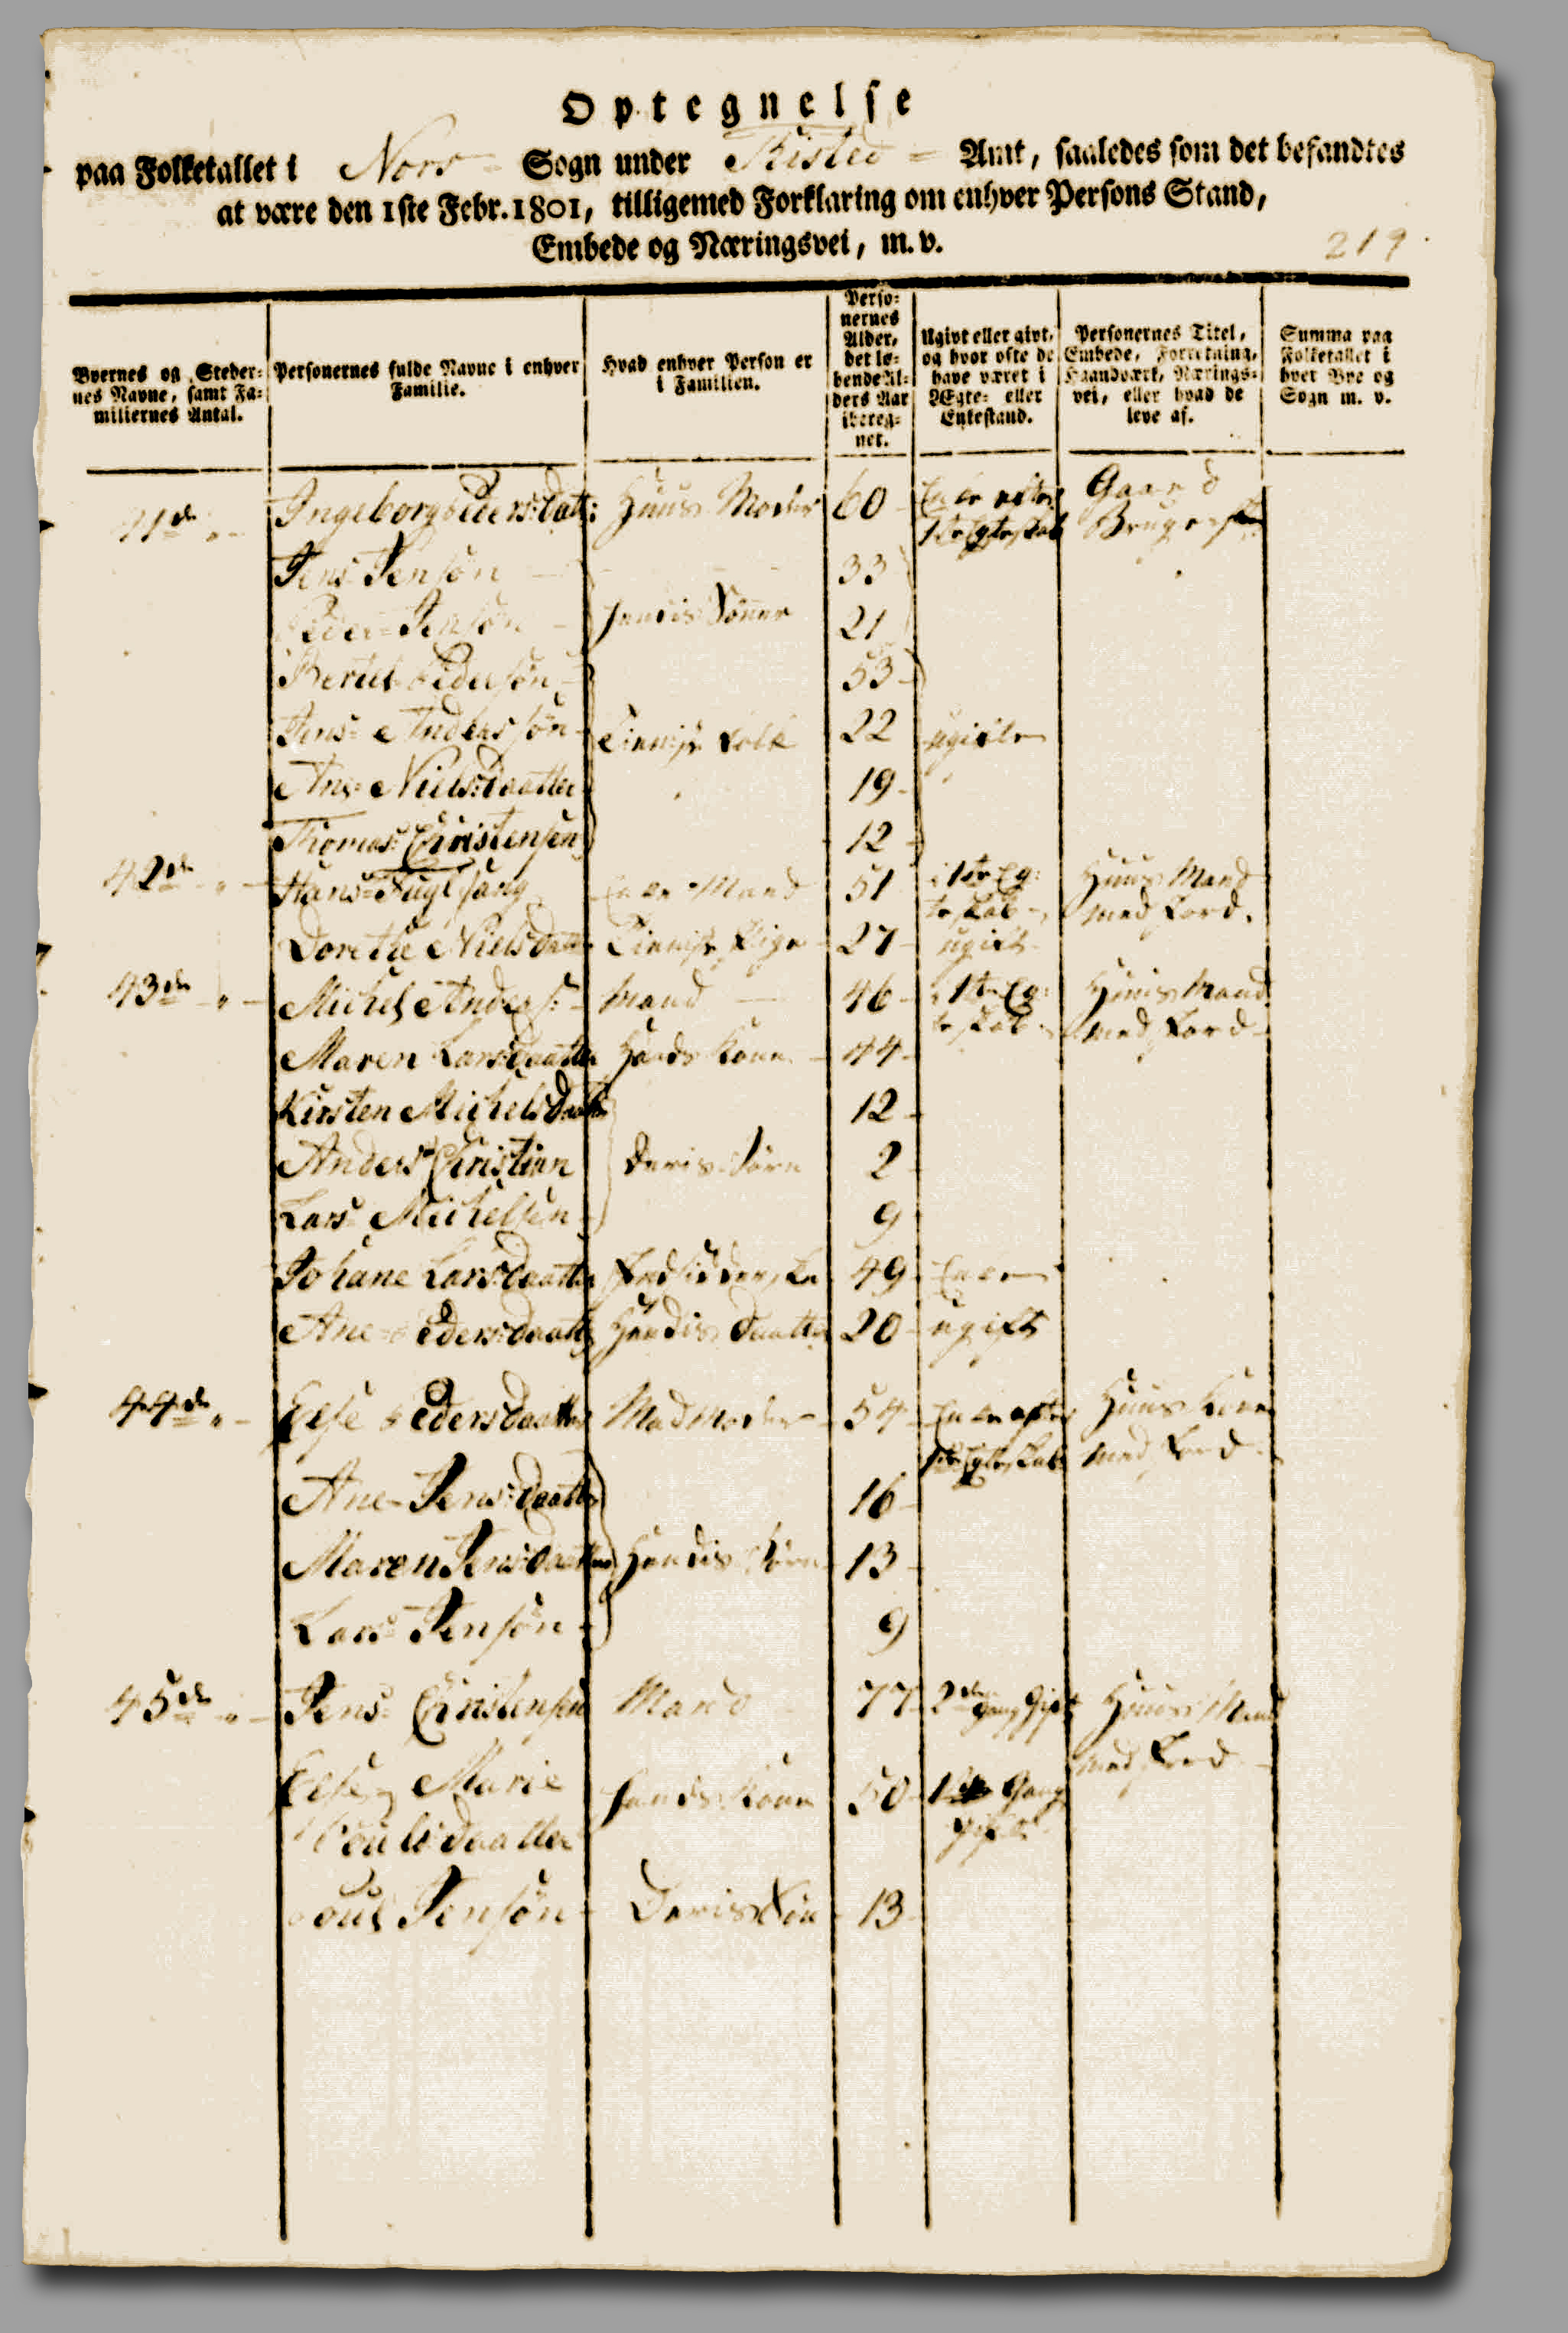 Optegnelse
paa Folketallet i Nors Sogn under Tisted Amt, saaledes som det befandtes
at være den 1ste Febr. 1801, tilligemed Forklaring om enhver Persons Stand,
Embede og Næringsvei, m. v.
219
Byernes og Steder-
nes Navne, samt Fa-
miliernes Antal.
Personernes fulde Navne i enhver
Familie.
Hvad enhver Person er
i Familien.
Perso-
nernes
Alder,
det lø-
bende Al-
ders Aar
ibereg-
net.
Ugivt eller givt,
og hvor ofte de
have været i
Ægte- eller
Enkestand.
Personernes Titel,
Embede, Forretning,
Haandværk, Nærings-
vei, eller hvad de
leve af.
Summa paa
Folketallet i
hver Bye og
Sogn m. v.
41de Ingeborg Peders:datt: Huus Moder 60 Enke efter Gaard
1te Egteskab Bruger
Jens Jensøn 33
Peder Jensøn hendis Sønner 21
Bertel Pedersøn 53
Jens Anderssøn Tieniste Folk 22 ugivte
Ane Niels:daatter 19
Thomas Christensen 12
42de Hans Fuglsang Enke Mand 51 1te Eg: Huus Mand
teskab med Jord.
Dorethe Nielsdatter Tieniste Pige 27 ugift
43de Michel Anders: Mand 46 1te Eg: Huus Mand
teskab med Jord
Maren Larsdaatter Hands Kone 44
Kirsten Michelsdaatter 12
Anders Christian Deris Børn 2
Lars Michelsen 9
Johane Larsdaatter Indsidderske 49 Enke
Ane Peders:daatter Hendis Daatter 20 ugift
44de Else Pedersdaatter Madmoder 54 Enke efter Huus Kone
1te Egteskab med Jord
Ane Jens:daatter 16
Maren Jensdaatter Hendis Børn 13
Lars Jensøn 9
45de Jens Christensen Mand 77 2den Gang Gift Huus Mand
med Jord
Else Marie hands Kone 50 1te Gang
Poulsdaatter gift
Poul Jensøn Deris Søn 13